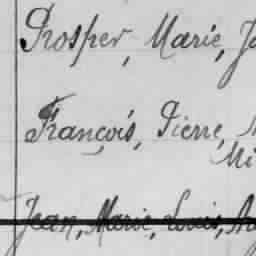 Prosper, Marie, Jo
François, Pierre,
Mi
Jean, Marie, Louis, Au